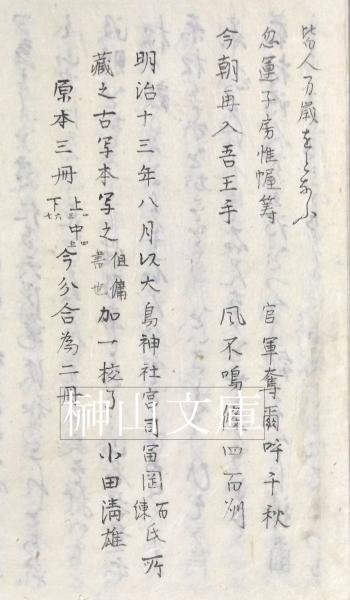 皆人万歳をとなふ
忽運子房惟幄筹 官軍奪爾呼千秋
今朝再入吾王手 風不鳴條四百洲
明治十三年八月以大鳥神社宮司富岡百錬氏所
蔵之古写本写之傭書也加一校了 小田清雄
原本三冊上一二三中四上下六七今分合為二冊
榊山文庫